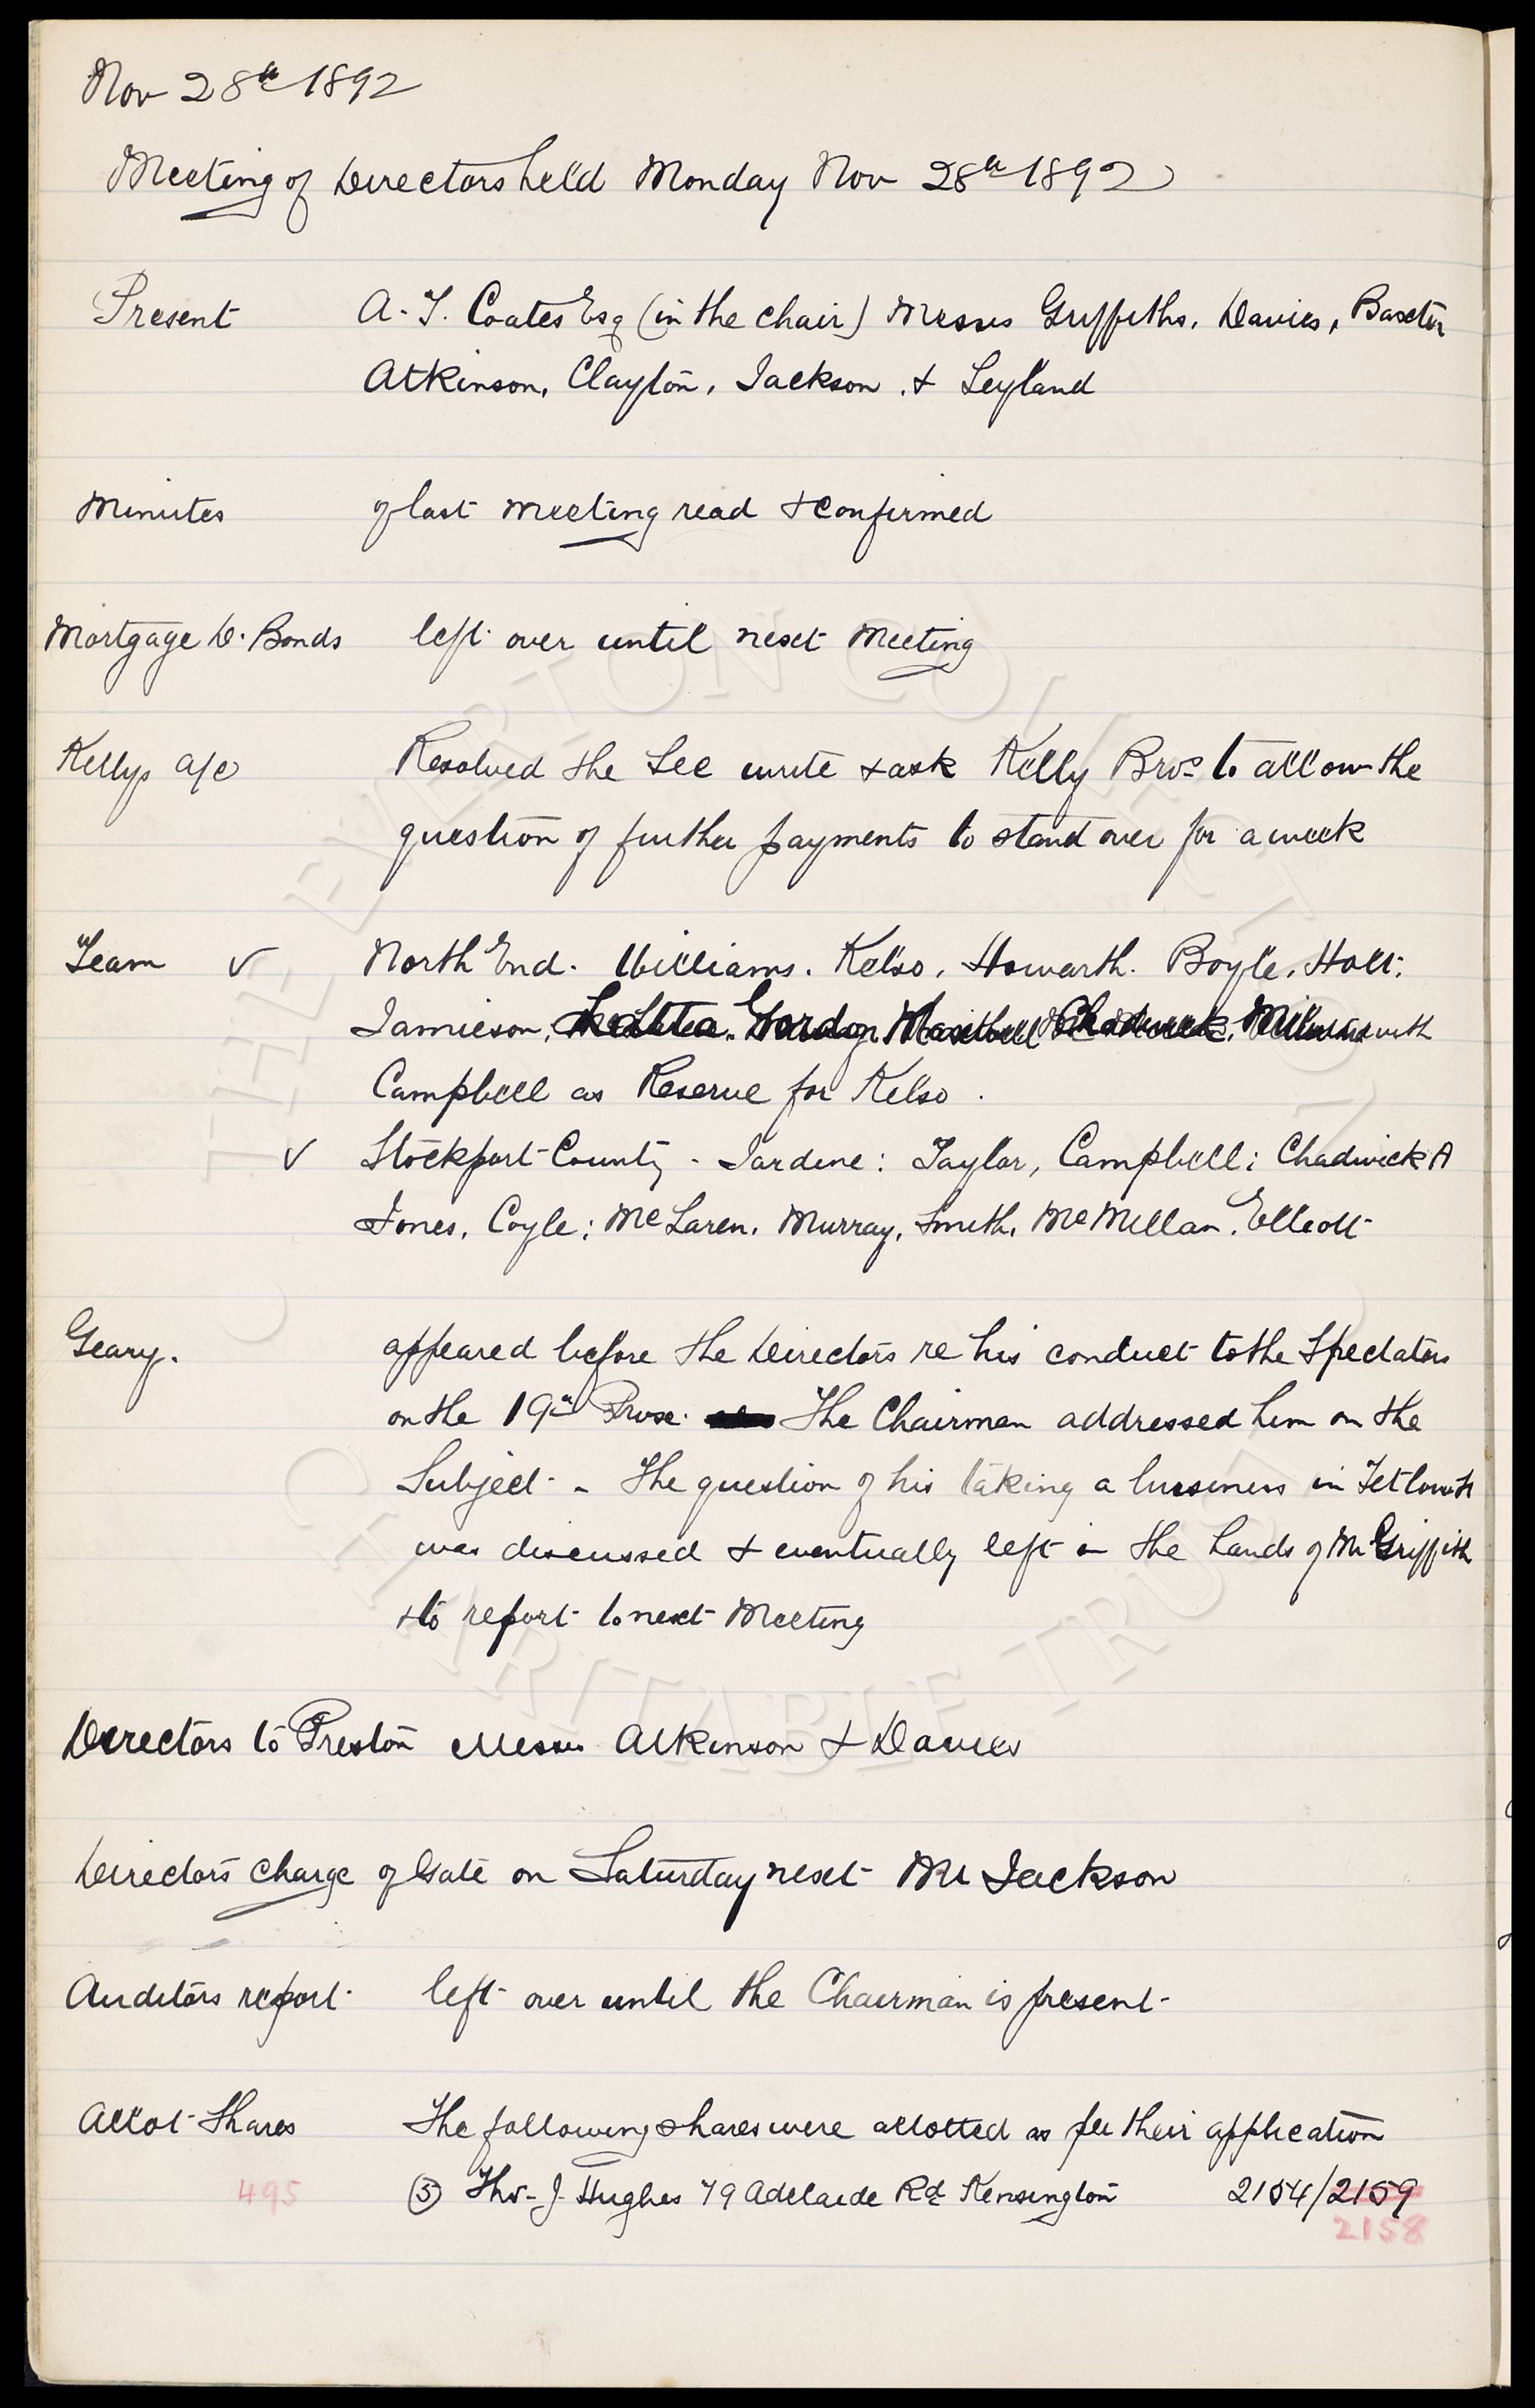 Nov 28th 1892
Meeting of Directors held Monday Nov 28th 1892
Present A. T. Coates Esq (in the chair) Messrs Griffiths, Davies, Baxter
Atkinson, Clayton, Jackson, & Leyland
Minutes of last meeting read & confirmed
Mortgage D. Bonds left over until next Meeting
Kellys a/c Resolved the Sec write & ask Kelly Bros to allow the
question of further payments to stand over for a week
Team ✓ North End. Williams. Kelso, Howarth. Boyle, Holt:
Jamieson, Latta. Gordon, Maxwell Chadwick, Milward with
Campbell as Reserve for Kelso.
✓ Stockport County - Jardine: Taylor, Campbell; Chadwick A
Jones, Coyle; McLaren, Murray, Smith, McMillan, Elliott
Geary. appeared before the Directors re his conduct to the Spectators
on the 19th Prox: The Chairman addressed him on the
Subject - The question of his taking a business in Tetlow St
was discussed & eventually left in the hands of Mr Griffith
& to report to next Meeting
Directors to Preston Messrs Atkinson & Davies
Directors charge of Gate on Saturday next Mr Jackson
Auditors report left over until the Chairman is present
Allot Shares The following shares were allotted as per their application
495 (5) Thos. J. Hughes 79 Adelaide Rd Kensington 2154/2159
2158
THE EVERTON COLLECTION
CHARITABLE TRUST